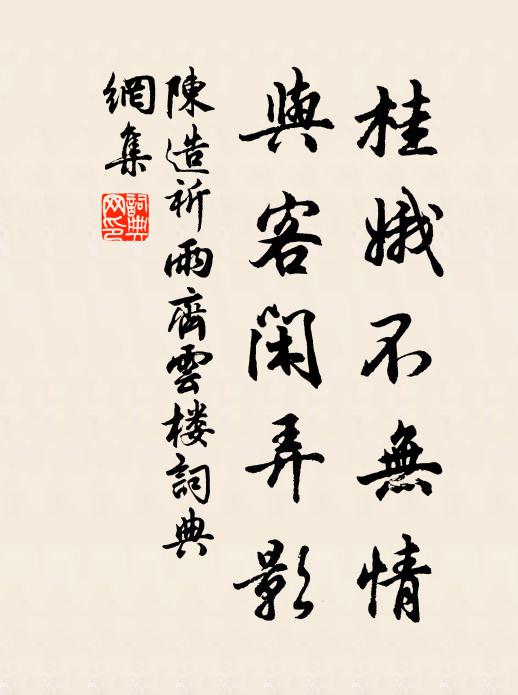 桂娥不無情
與客闲弄影
陳造祈雨齊雲楼詞典
網集
詞典网印